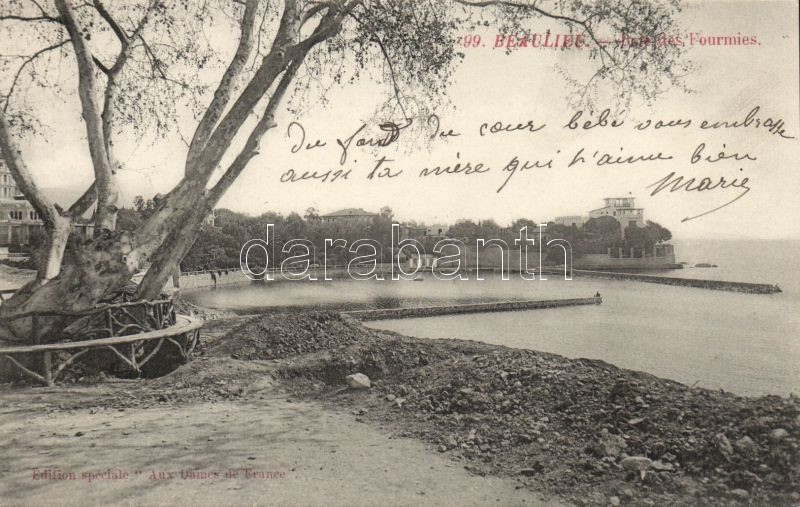 99. BEAULIEU. — Baie des Fourmies.
du fond du cœur bébé vous embrasse
aussi ta mère qui t'aime bien
Marie
darabanth
Edition spéciale " Aux Dames de France